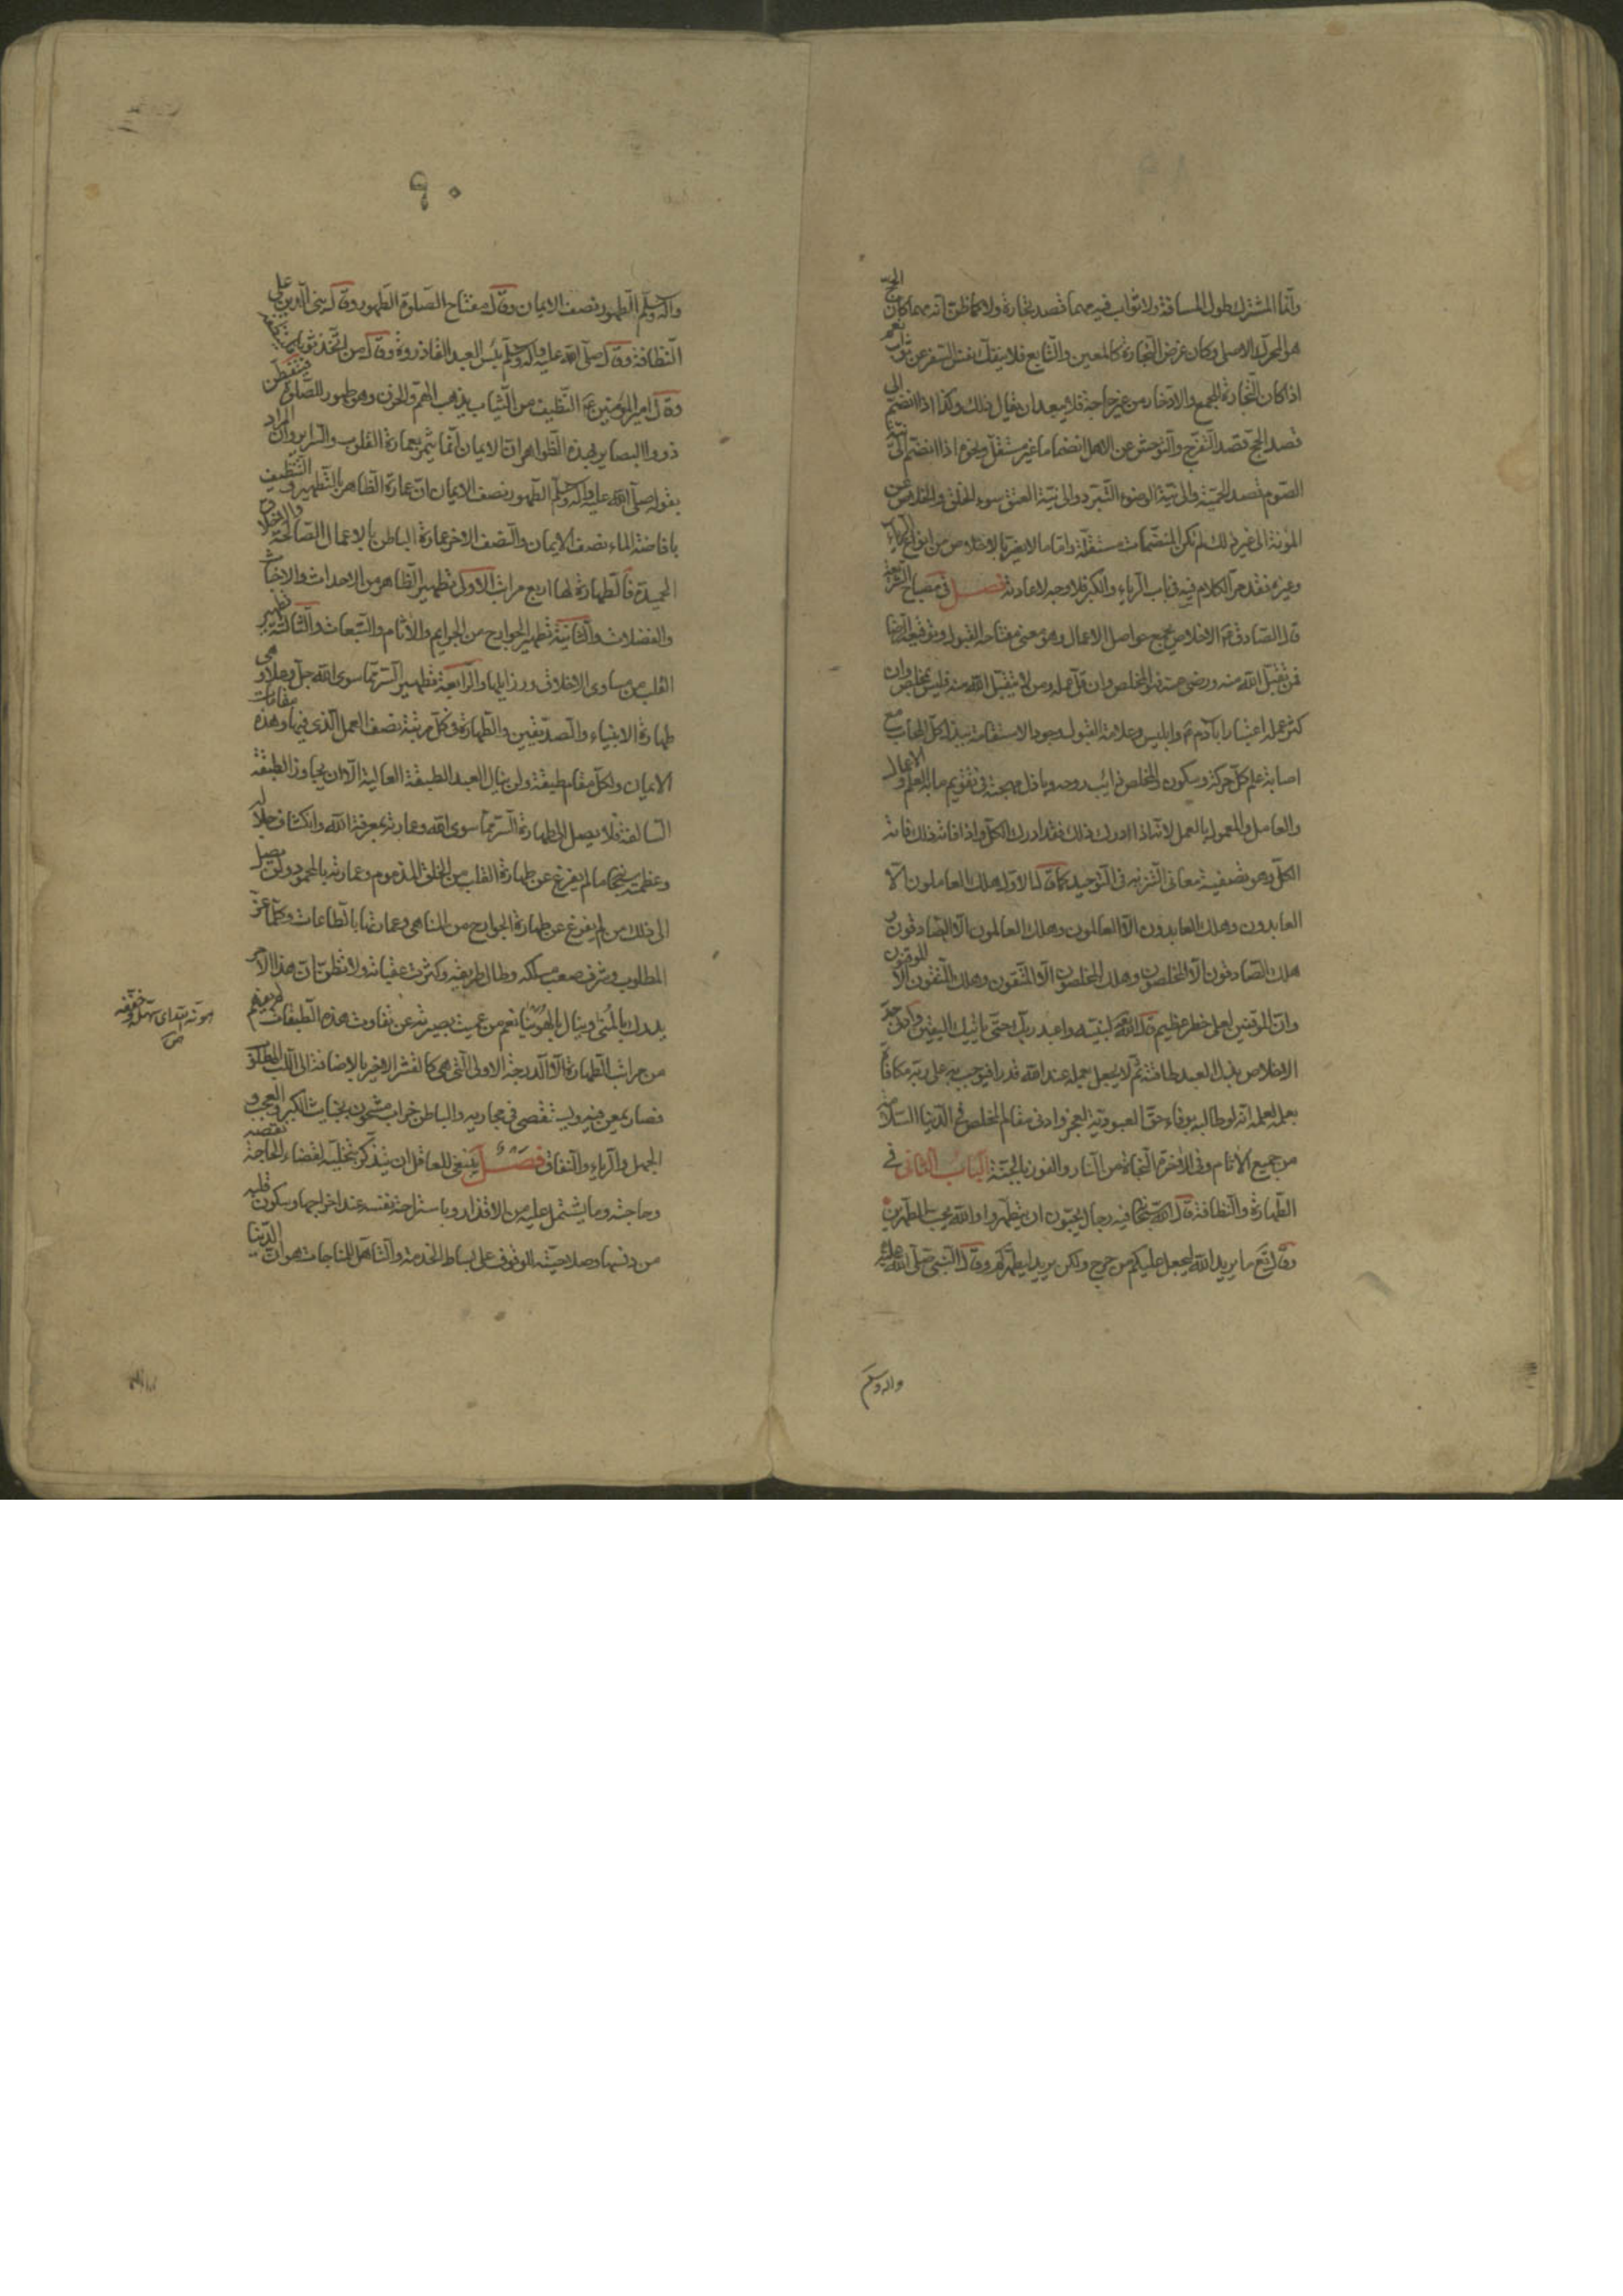 وانما المشترك طول المسافة ولا ثواب فيه مهما قصد تجارة ولا كما ظن انه مهما كان الحج
هو المحرك الاصلى وكان غرض التجارة كالمعين والتابع فلا ينفك نفس السفر عن ثواب نعم
اذا كان التجارة للجمع والادخار من غير حاجة فلا يبعد ان يقال ذلك وكذا اذا انضم الى
قصد الحج قصد التفرج والتوحش عن الاهل انضماما غير مستقل ونحوه اذا انضم الى نية
الصوم قصد الحمية والى نية الوضوء التبرد والى نية العتق سوء الخلق والخلاص عن
المؤنة الى غير ذلك لم تكن المنضمات مستقلة واما ما لا يضر بالاخلاص من انواع الرياء
وغيره فقد مر الكلام فيه فى باب الرياء والكبر فلا وجه لاعادته فصل فى مصباح الشريعة
قال الصادق ع الاخلاص يجمع حواصل الاعمال وهو معنى مفتاحه القبول وتوقيعه الرضا
فمن تقبل الله منه ورضى عنه فهو المخلص وان قل عمله ومن لا يتقبل الله منه فليس بمخلص وان
كثر عمله اعتبارا بآدم ع وابليس وعلامة القبول وجود الاستقامة ببذل كل المحاب مع
اصابة علم كل حركة وسكون والمخلص ذائب روحه وباذل مهجته فى تقويم ما به العلم والاعمال
والعامل والمعمول بالعمل لانه اذا ادرك ذلك فقد ادرك الكل واذا فاته ذلك فاته
الكل وهو تصفية معانى التنزيه فى التوحيد كما قال الاول هلك العاملون الا
العابدون وهلك العابدون الا العالمون وهلك العالمون الا الصادقون و
هلك الصادقون الا المخلصون وهلك المخلصون الا المتقون وهلك المتقون الا الموقنون
وان الموقنين لعلى خطر عظيم قال الله تعالى لنبيه واعبد ربك حتى ياتيك اليقين وادنى حد
الاخلاص بذل العبد طاقته ثم لا يجعل لعمله عند الله قدرا فيوجب به على ربه مكافاة
بعمله لعلمه انه لو طالبه بوفاء حق العبودية لعجز وادنى مقام المخلص فى الدنيا السلامة
من جميع الاثام وفى الاخرة النجاة من النار والفوز بالجنة الباب الثانى فى
الطهارة والنظافة قال الله سبحانه فيه رجال يحبون ان يتطهروا والله يحب المطهرين
وقال تع ما يريد الله ليجعل عليكم من حرج ولكن يريد ليطهركم وقال النبى صلى الله عليه
واله وسلم
٩٠
واله وسلم الطهور نصف الايمان وقال مفتاح الصلوة الطهور وقال بنى الدين على
النظافة وقال صلى الله عليه واله وسلم بئس العبد القاذورة وقال من اتخذ ثوبا فلينظفه
وقال امير المؤمنين ع النظيف من الثياب يذهب الهم والحزن وهو طهور للصلوة فيتفطن
ذووا البصاير بهذه الظواهر ان الايمان انما يثمر بعمارة القلوب والسراير وان المراد
بقوله صلى الله عليه واله وسلم الطهور نصف الايمان ان عمارة الظاهر بالتطهير والتنظيف
بافاضة الماء نصف الايمان والنصف الاخر عمارة الباطن بالاعمال الصالحة والاخلاق
الحميدة فالطهارة لها اربع مراتب الاولى تطهير الظاهر من الاحداث والاخباث
والفضلات والثانية تطهير الجوارح من الجرايم والاثام والتبعات والثالثة تطهير
القلب من مساوى الاخلاق ورذايلها والرابعة تطهير السر عما سوى الله جل وعلا وهى
طهارة الانبياء والصديقين والطهارة فى كل مرتبة نصف العمل الذى فيها وهذه مقامات
الايمان ولكل مقام طبقة ولن ينال العبد الطبقة العالية الا ان يجاوز الطبقة
السافلة فلا يصل الى طهارة السر عما سوى الله وعمارته بمعرفة الله وانكشاف جلاله
وعظمته سبحانه ما لم يفرغ عن طهارة القلب من الخلق المذموم وعمارته بالمحمود ولن يصل
الى ذلك من لم يفرغ عن طهارة الجوارح من المناهى وعمارتها بالطاعات وكلما عز
المطلوب وشرف صعب مسلكه وطال طريقه وكثرت عقباته ولا تظن ان هذا الامر
يدرك بالمنى وينال بالهوينا نعم من عميت بصيرته عن تفاوت هذه الطبقات لم يفهم
من مراتب الطهارة الا الدرجة الاولى التى هى كالقشر الاخير بالاضافة الى اللب المطلوب
فصار يمعن فيه ويستقصى فى مجاريه والباطن خراب مشحون بخبايث الكبر والعجب و
الجهل والرياء والنفاق فصل ينبغى للعاقل ان يتذكر بتخليه لقضاء الحاجة نقصه
وحاجته وما يشتمل عليه من الاقذار وباستراحة نفسه عند اخراجها وسكون قلبه
من دنسها وصلاحيته للوقوف على بساط الخدمة والتاهل للمناجات هوان الدنيا